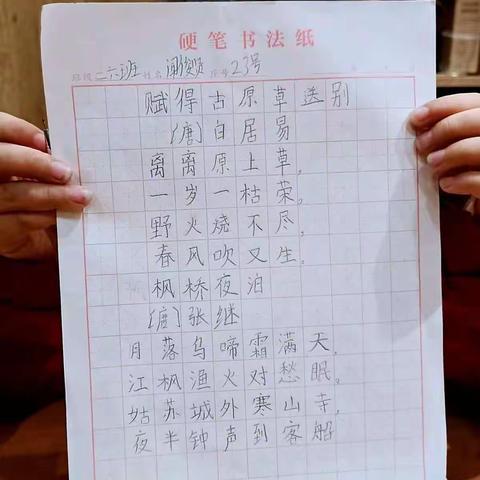 硬笔书法纸
班级 二六班 姓名 序号 23号
赋得古原草送别
[唐]白居易
离离原上草,
一岁一枯荣。
野火烧不尽,
春风吹又生。
枫桥夜泊
[唐]张继
月落乌啼霜满天,
江枫渔火对愁眠。
姑苏城外寒山寺,
夜半钟声到客船